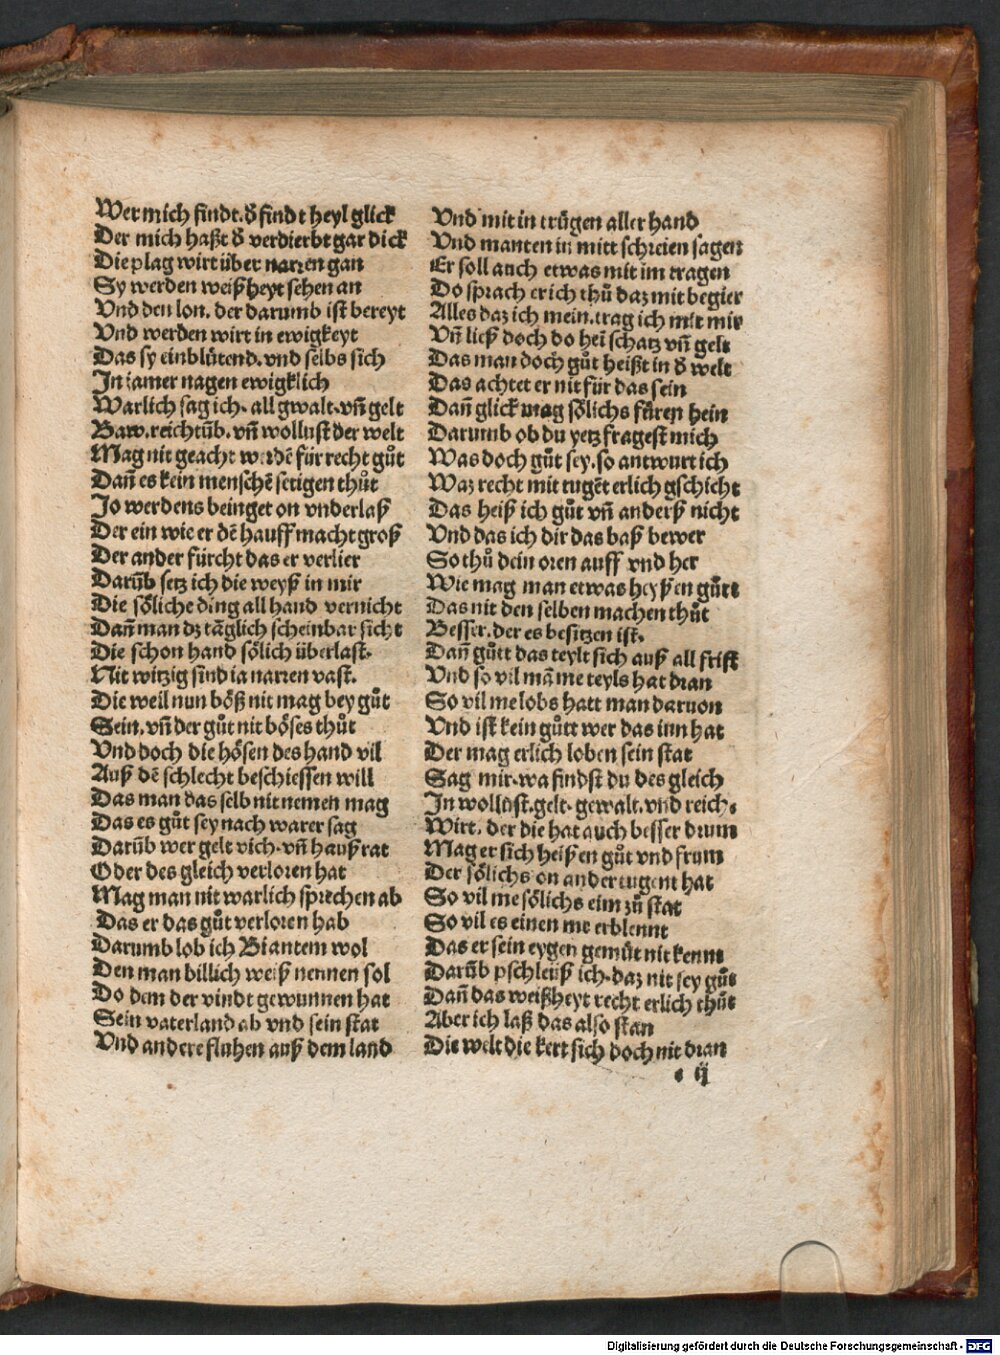 Wer mich findt. d̕ find t heyl glick
Der mich haßt d̕ verdierbt gar dick
Die plag wirt über narren gan
Sy werden weißheyt sehen an
Vnd den lon. der darumb ist bereyt
Vnd werden wirt in ewigkeyt
Das sy einblůtend. vnd selbs sich
In iamer nagen ewigklich
Warlich sag ich. all gwalt. vñ gelt
Baw. reichtūb. vñ wollust der welt
Mag nit geacht werdē für recht gůt
Dañ es kein menschē setigen thůt
Jo werdens beinget on vnderlaß
Der ein wie er dē hauff macht groß
Der ander fürcht das er verlier
Darūb setz ich die weyß in mir
Die söliche ding all hand vernicht
Dañ man dz täglich scheinbar sicht
Die schon hand sölich überlast.
Nit witzig sind ia narren vast.
Die weil nun böß nit mag bey gůt
Sein. vñ der gůt nit böses thůt
Vnd doch die hösen des hand vil
Auß dē schlecht beschiessen will
Das man das selb nit nemen mag
Das es gůt sey nach warer sag
Darūb wer gelt vich. vñ haußrat
Oder des gleich verloren hat
Mag man nit warlich sprechen ab
Das er das gůt verloren hab
Darumb lob ich Biantem wol
Den man billich weiß nennen sol
Do dem der vindt gewunnen hat
Sein vaterland ab vnd sein stat
Vnd andere fluhen auß dem land
Vnd mit in trůgen aller hand
Vnd manten in mitt schreien sagen
Er soll auch etwas mit im tragen
Do sprach er ich thů daz mit begier
Alles daz ich mein. trag ich mit mir
Vñ ließ doch do hei schatz vñ gelt
Das man doch gůt heißt in d̕ welt
Das achtet er nit für das sein
Dañ glick mag sölichs fůren hein
Darumb ob du yetz fragest mich
Was doch gůt sey. so antwurt ich
Waz recht mit tugēt erlich gschicht
Das heiß ich gůt vñ anderß nicht
Vnd das ich dir das baß bewer
So thů dein oren auff vnd her
Wie mag man etwas heyßen gůtt
Das nit den selben machen thůt
Besser. der es besitzen ist.
Dañ gůtt das teylt sich auß all frist
Vnd so vil mā me teyls hat dran
So vil me lobs hatt man daruon
Vnd ist kein gůtt wer das inn hat
Der mag erlich loben sein stat
Sag mir. wa findst du des gleich
In wollust. gelt. gewalt. vnd reich.
Wirt. der die hat auch besser drum
Mag er sich heißen gůt vnd frum
Der sölichs on ander tugent hat
So vil me sölichs eim zů stat
So vil es einen me erblennt
Das er sein eygen gemůt nit kennt
Darūb pschleüß ich. daz nit sey gůt
Dañ das weißheyt recht erlich thůt
Aber ich laß das also stan
Die welt die kert sich doch nit dran
e ij
Digitalisierung gefördert durch die Deutsche Forschungsgemeinschaft - DFG